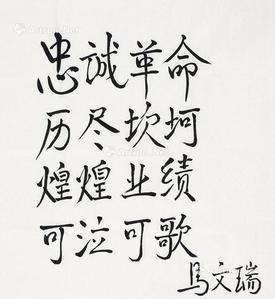 忠诚革命
历尽坎坷
煌煌业绩
可泣可歌
马文瑞